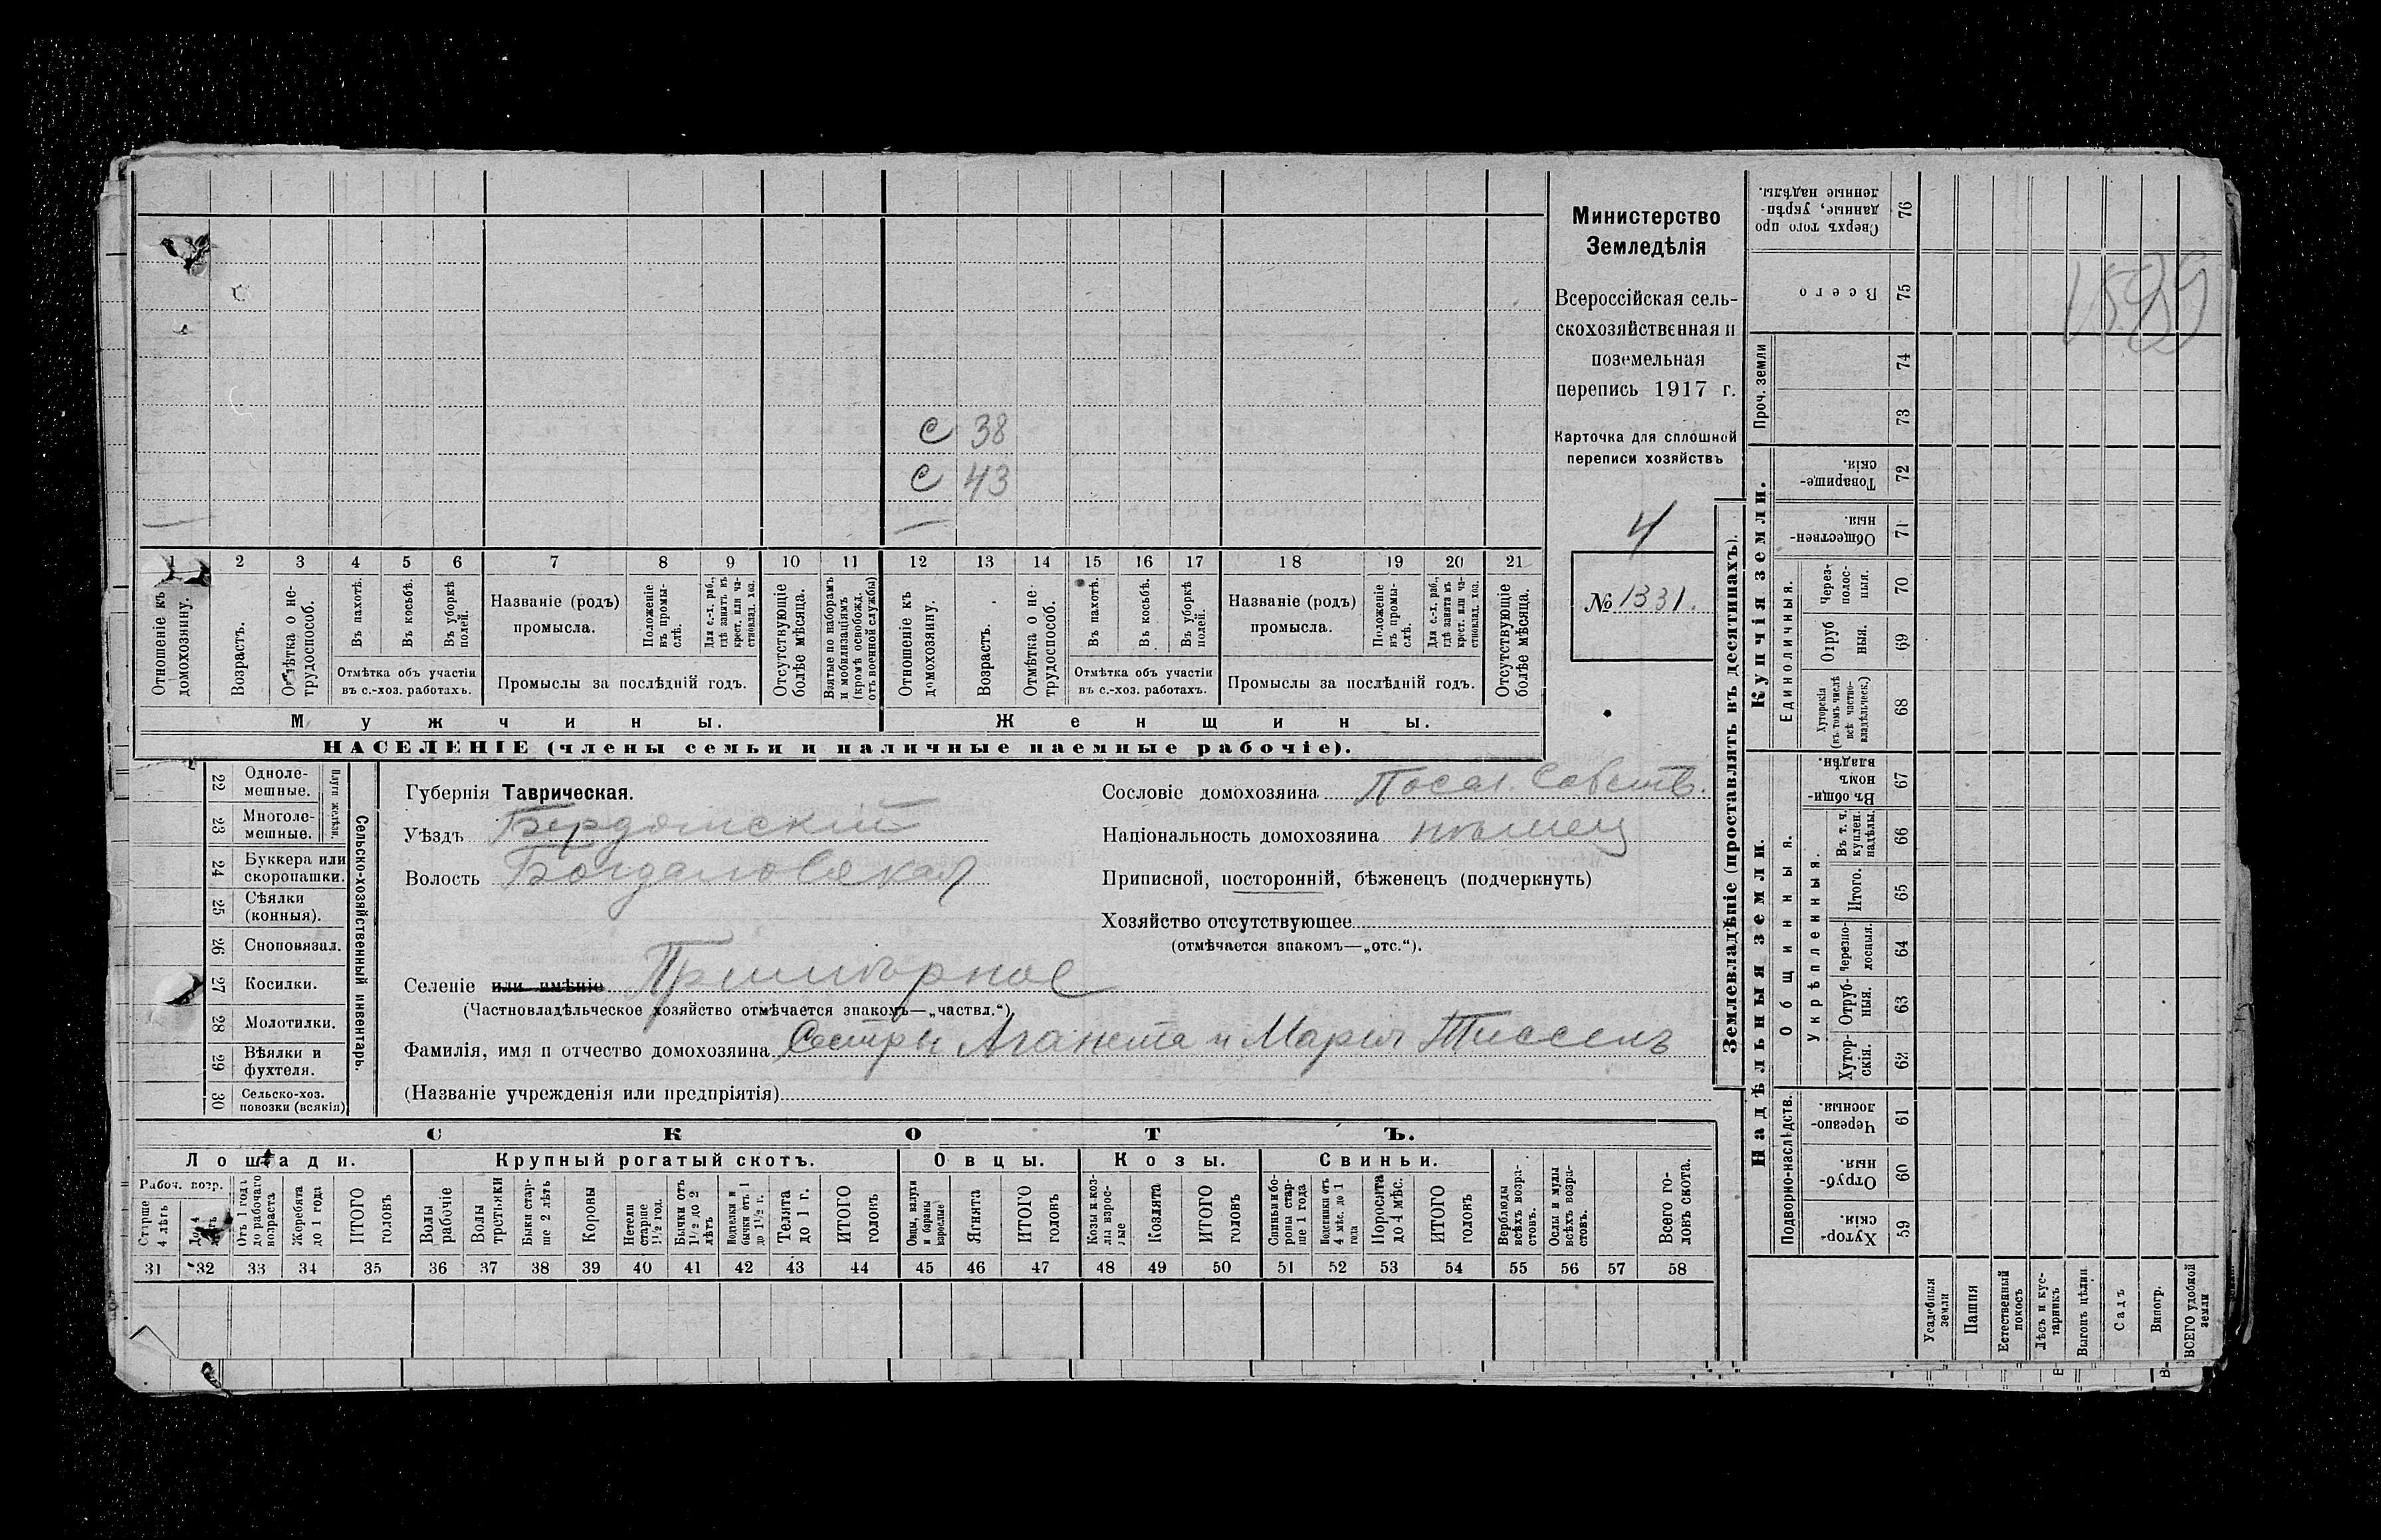 Министерство
Земледѣлія
Всероссійская сель-
скохозяйственная и
поземельная
перепись 1917 г.
Карточка для сплошной
переписи хозяйствъ
4
№ 1331.
С 38
С 43
1 2 3 4 5 6 7 8 9 10 11 12 13 14 15 16 17 18 19 20 21
Отношеніе къ домохозяину.
Возрастъ.
Отмѣтка о не-трудоспособ.
Въ пахотѣ.
Въ косьбѣ.
Въ уборкѣ полей.
Отмѣтка объ участіи
въ с.-хоз. работахъ.
Названіе (родъ)
промысла.
Положеніе въ промы-слѣ.
Для с.-х. раб., гдѣ занятъ въ крест. или ча-стновлад. хоз.
Промыслы за послѣдній годъ.
Отсутствующіе болѣе мѣсяца.
Взятые по наборамъ и мобилизаціямъ (кромѣ освобожд. отъ военной службы)
Отношеніе къ домохозяину.
Возрастъ.
Отмѣтка о не-трудоспособ.
Въ пахотѣ.
Въ косьбѣ.
Въ уборкѣ полей.
Отмѣтка объ участіи
въ с.-хоз. работахъ.
Названіе (родъ)
промысла.
Положеніе въ промы-слѣ.
Для с.-х. раб., гдѣ занята въ крест. или ча-стновлад. хоз.
Промыслы за послѣдній годъ.
Отсутствующіе болѣе мѣсяца.
Мужчины. Женщины.
НАСЕЛЕНІЕ (члены семьи и наличные наемные рабочіе).
22 Одноле-мешные.
23 Многоле-мешные.
Плуги желѣзн.
24 Буккера или скоропашки.
25 Сѣялки (конныя).
26 Сноповязал.
27 Косилки.
28 Молотилки.
29 Вѣялки и фухтеля.
30 Сельско-хоз. повозки (всякія)
Сельско-хозяйственный инвентарь.
Губернія Таврическая.
Уѣздъ Бердянскій
Волость Богдановская
Селеніе или имѣніе Примѣрное
(Частновладѣльческое хозяйство отмѣчается знакомъ—„частвл.“)
Фамилія, имя и отчество домохозяина Сестры Аганета и Марія Тиссенъ
(Названіе учрежденія или предпріятія)
Сословіе домохозяина Посел. Собств.
Національность домохозяина нѣмец
Приписной, посторонній, бѣженецъ (подчеркнуть)
Хозяйство отсутствующее
(отмѣчается знакомъ—„отс.“).
СКОТЪ.
Лошади. Крупный рогатый скотъ. Овцы. Козы. Свиньи.
Рабоч. возр.
Старше 4 лѣтъ
До 4 лѣтъ
Отъ 1 года до рабочаго возраста
Жеребята до 1 года
ИТОГО головъ
Волы рабочіе
Волы третьяки
Быки стар-ше 2 лѣтъ
Коровы
Нетели старше 1½ год.
Бычки отъ 1½ до 2 лѣтъ
Подтелки и бычки отъ 1 до 1½ г.
Телята до 1 г.
ИТОГО головъ
Овцы, валухи и бараны взрослые
Ягнята
ИТОГО головъ
Козы и коз-лы взрос-лые
Козлята
ИТОГО головъ
Свиньи и бо-ровы стар-ше 1 года
Подсвинки отъ 4 мѣс. до 1 года
Поросята до 4 мѣс.
ИТОГО головъ
Верблюды всѣхъ возра-стовъ.
Ослы и мулы всѣхъ возра-стовъ.
Всего го-ловъ скота.
31 32 33 34 35 36 37 38 39 40 41 42 43 44 45 46 47 48 49 50 51 52 53 54 55 56 57 58
Землевладѣніе (проставлять въ десятинахъ).
Купчія земли.
Надѣльныя земли.
76 Сверхъ того про данные, укрѣп-ленные надѣлы.
75 Всего
Проч. земли
74
73
72 Товарище-скія.
71 Обществен-ныя.
Единоличныя.
70 Через-полос-ныя.
69 Отруб ныя.
68 Хуторскія (въ томъ числѣ всѣ частно-владѣльческ.)
Общинныя.
67 Въ общи-номъ владѣн.
Укрѣпленныя.
66 Въ т. ч. куплен. надѣлы.
65 Итого.
64 Черезпо-лосныя.
63 Отруб-ныя.
62 Хутор-скія.
Подворно-наслѣдств.
61 Черезпо-лосныя.
60 Отруб-ныя.
59 Хутор-скія.
Усадебныя земли
Пашня
Естественный покосъ
Лѣсъ и кус-тарникъ
Выгонъ цѣлин.
Садъ
Виногр.
ВСЕГО удобной земли